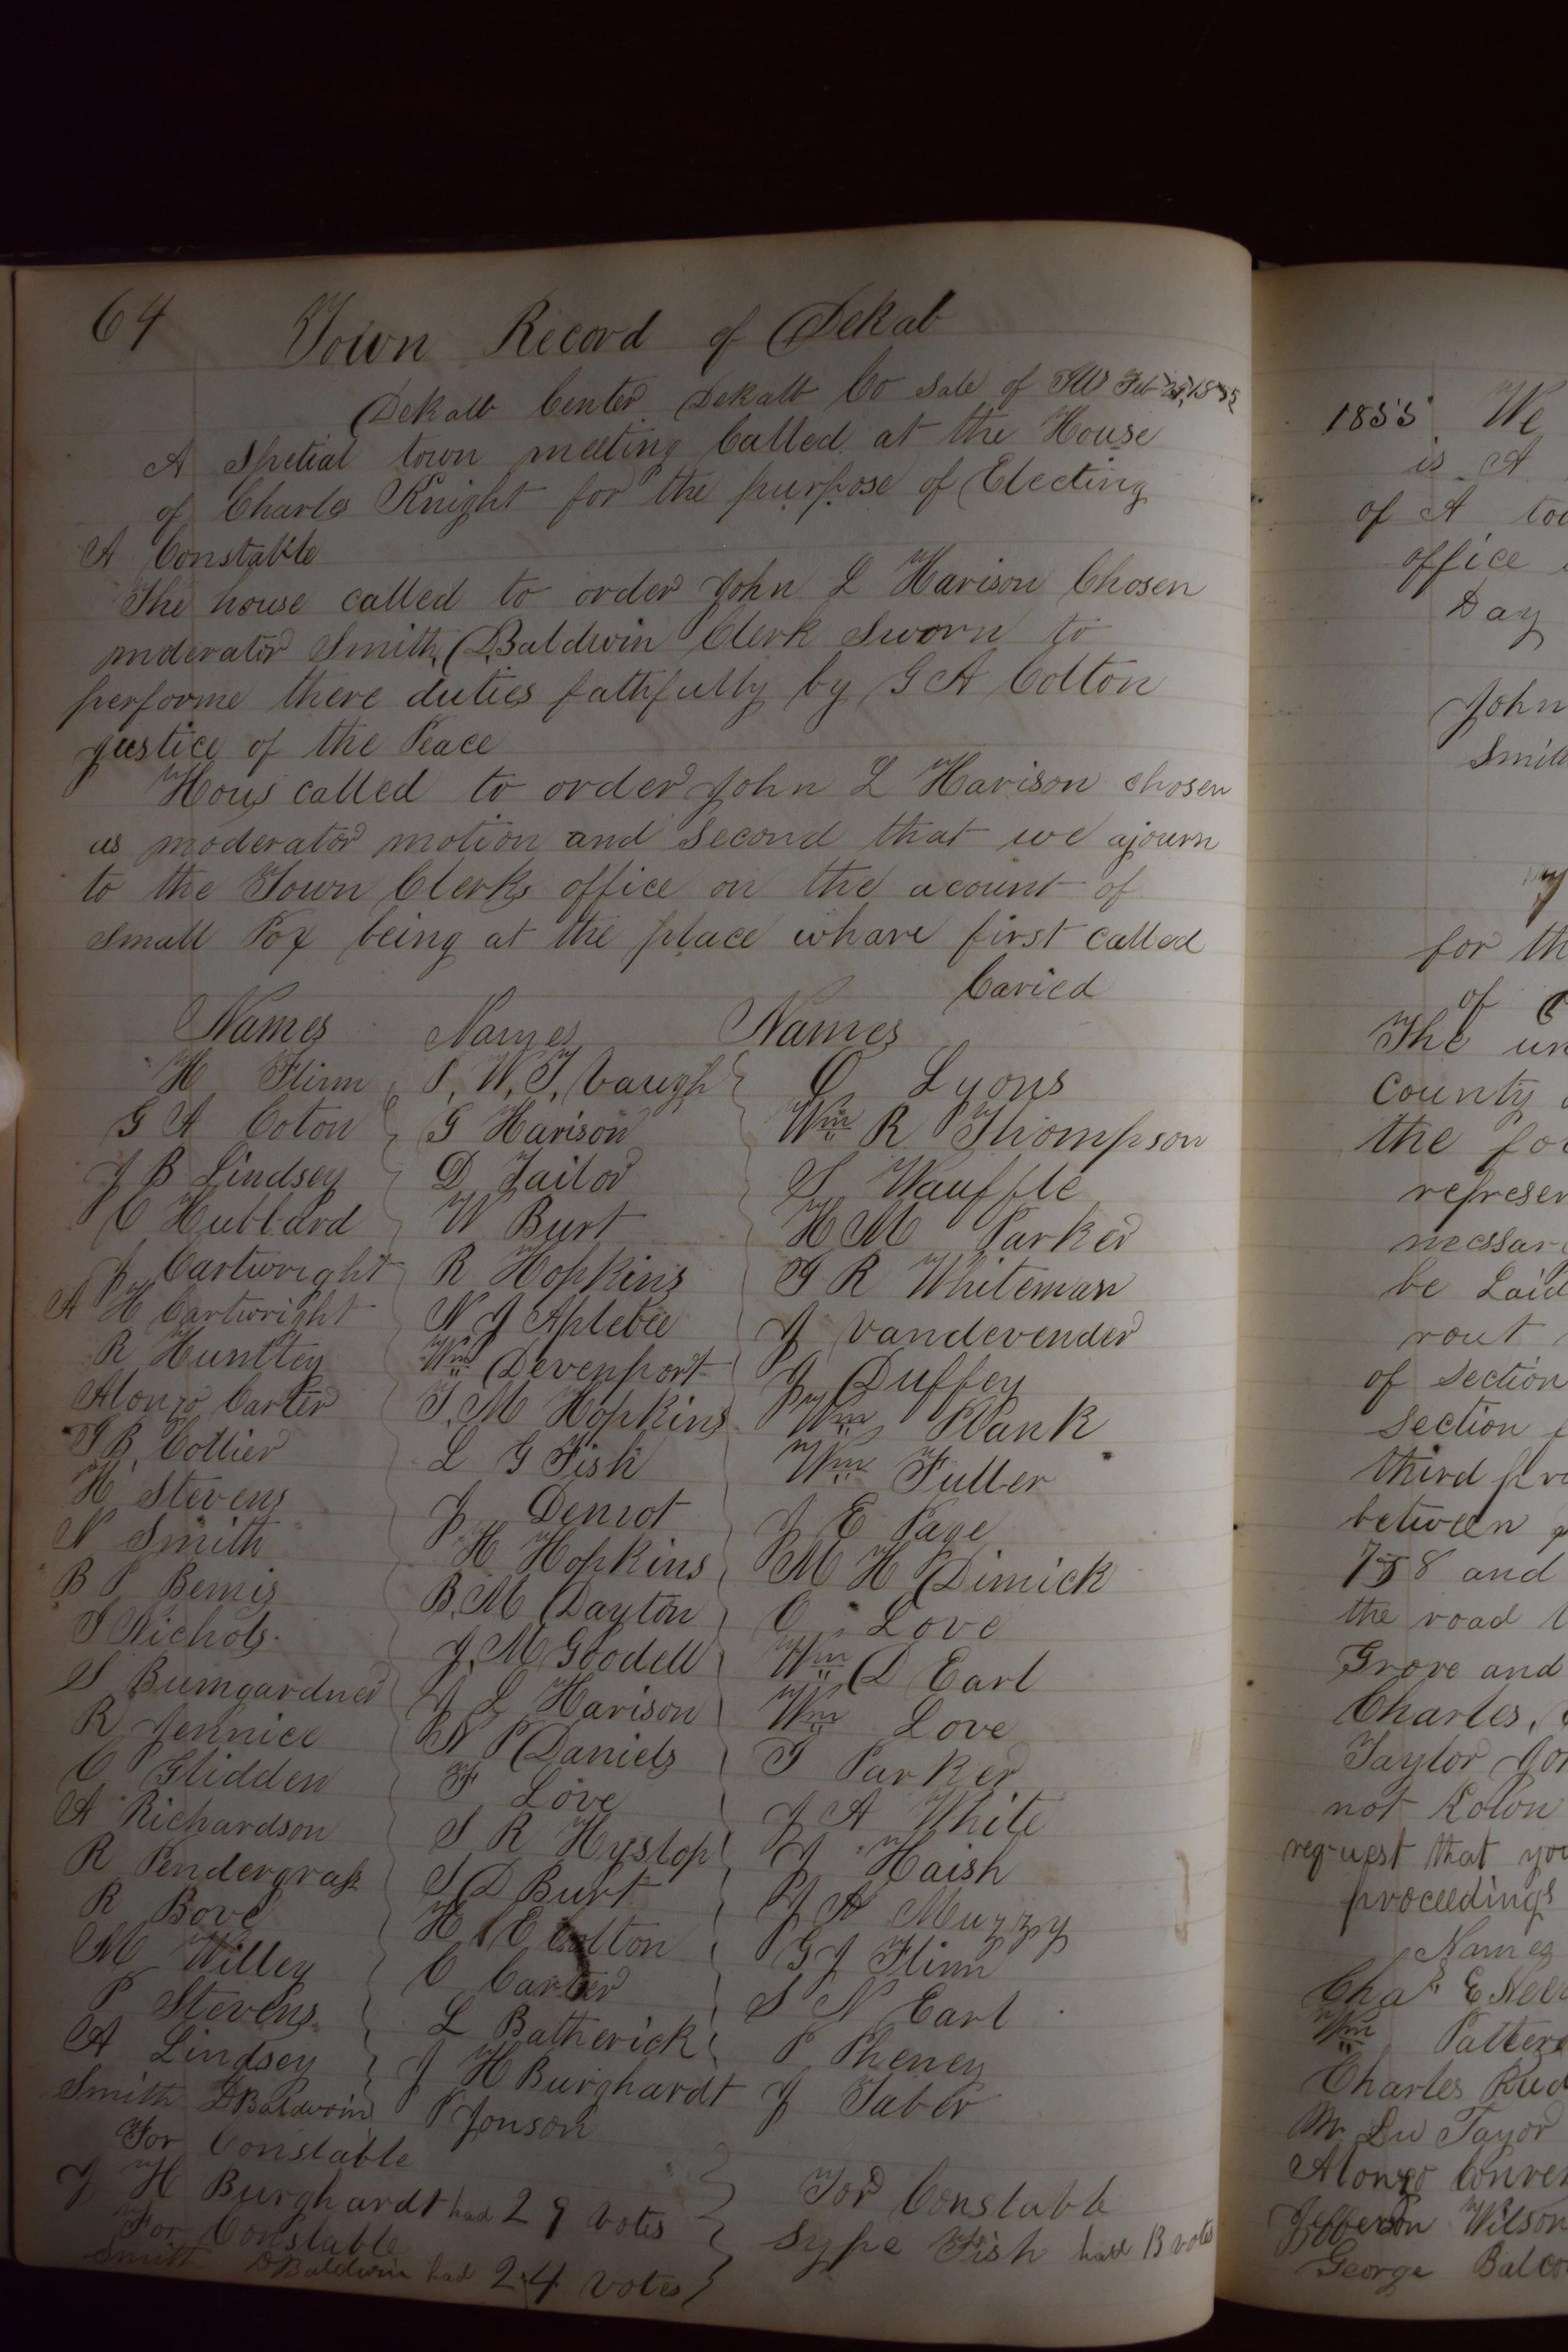 64 Town Record of Dekab
Dekalb Center Dekalb Co Sate of Feb 1855
A Spetial town meeting Called at the House
of Charls Knight for the purpose of Electing
A Constable
The house called to order John L Harison Chosen
moderator Smith D Baldwin Clerk Sworn to
performe there duties fathfully by G A Colton
justice of the Peace
Hous called to order John L Harison chosen
as moderator motion and second that we ajourn
to the Town Clerks office on the acount of
small Pox being at the place whare first called
Caried
Names
H Flinn
G A Coton
J B Lindsey
C Hubbard
J Cartwright
A H Cartwright
R Huntley
Alonzo Carter
Collier
H Stevens
N Smith
B P Bemis
Nichols
S Bumgardner
R Jennice
C Glidden
A Richardson
R Pendergrass
R Bove
M Willey
P Stevens
A Lindsey
Smith D Baldwin
Names
G Harison
D Tailor
W Burt
R Hopkins
N J Aplebee
Wm Devenport
M Hopkins
L G Fish
J
H Hopkins
B. M Dayton
J. M Goodell
J L Harison
N P Daniels
F Love
S R Hyslop
S D Burt
H E Colton
C Carter
L Batherick
J H Burghardt
P Jonson
Names
Lyons
Wm R Thompson
S Wauffle
H M Parker
R Whiteman
J Vandevender
J Duffey
Wm Plank
Wm Fuller
J E Page
M H Dimick
C Love
Wm D Earl
Wm Love
Parker
J A White
J Haish
J A Muzzy
G J Flinn
S N Earl
P Pheney
J Taber
For Constable
J H Burghardt had 29 votes
For Constable
Smith D Baldwin had 24 votes
For Constable
Sype Fish had 13 votes
1855 We
is A
of A
office
Day
John
for
of
The
County
the
be
rout
of section
section
third
between
7 & 8 and
the road
Grove and
Charles,
Taylor
not
request that you
proceedings
Names
Chas E
Wm
Charles
Mr
Alonzo
Wilson
George